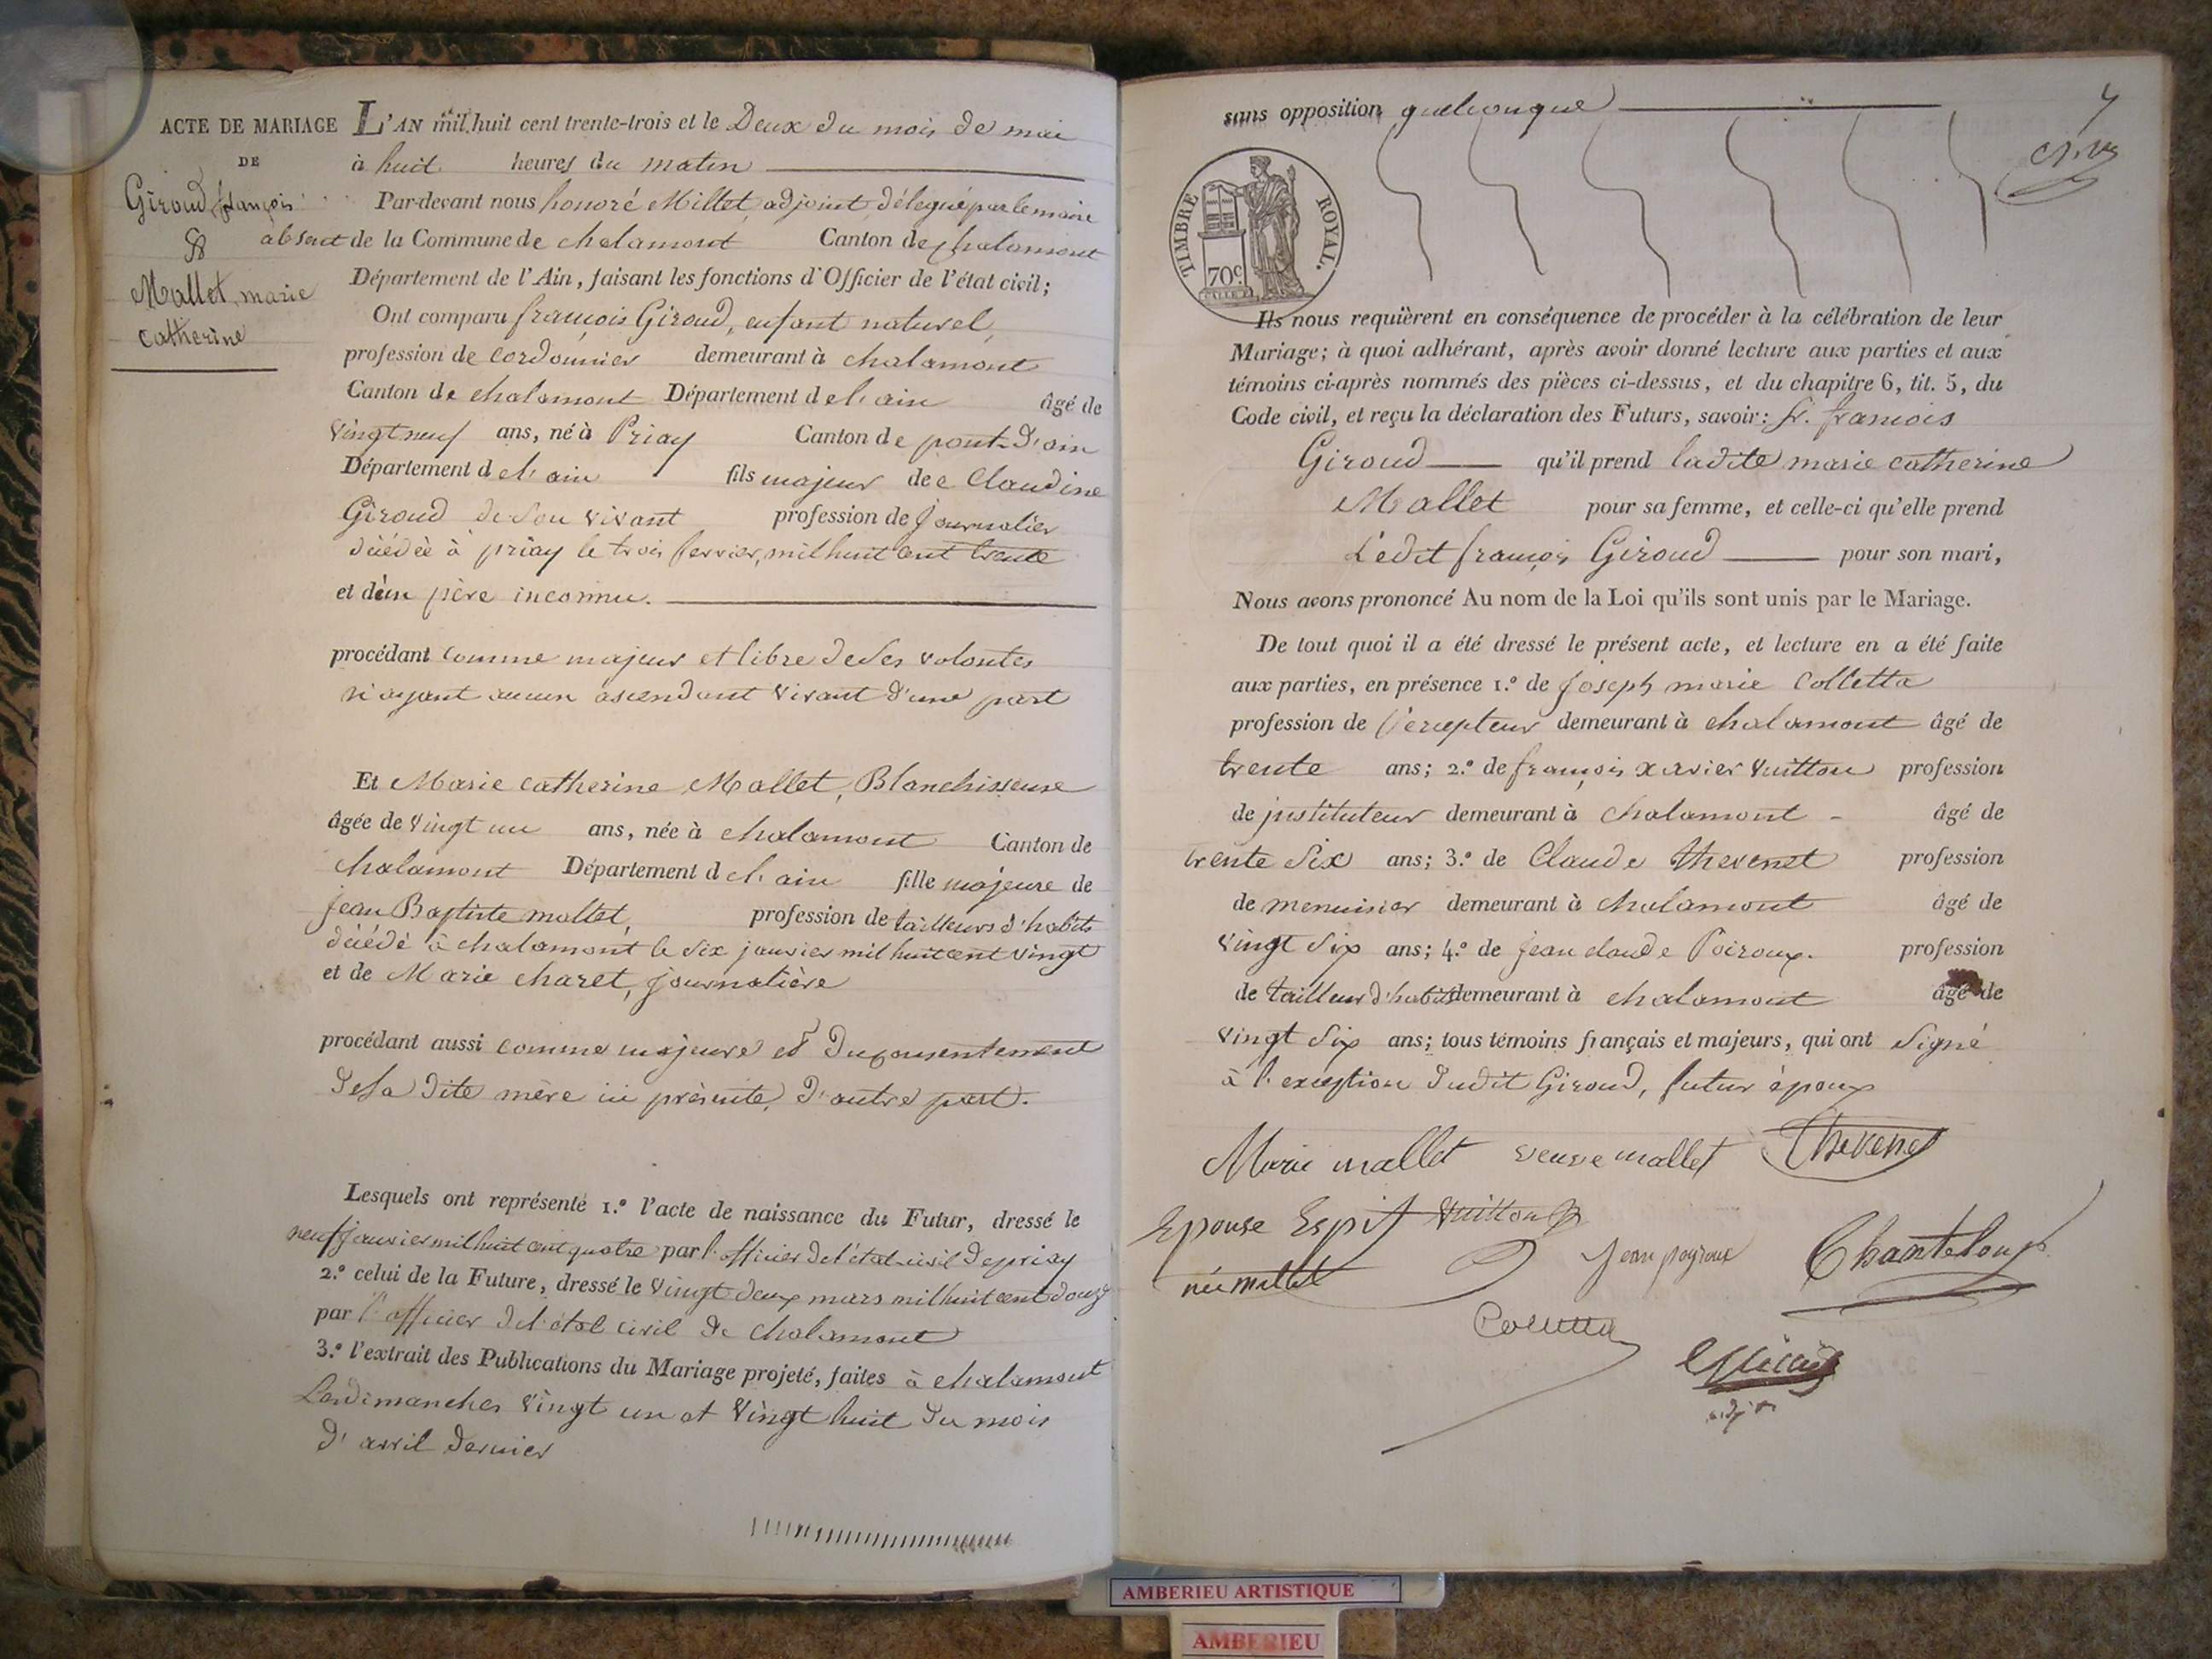 ACTE DE MARIAGE
DE
Giroud françois
&
Mallet marie
catherine
L'AN mil huit cent trente-trois et le Deux du mois de mai
à huit heures du matin
Par-devant nous honoré Millet, adjoint, délégué par le maire
absent de la Commune de chalamont Canton de chalamont
Département de l'Ain, faisant les fonctions d'Officier de l'état civil;
Ont comparu françois Giroud, enfant naturel,
profession de cordonnier demeurant à chalamont
Canton de chalamont Département de l'ain âgé de
vingt neuf ans, né à Priay Canton de pont-d'ain
Département de l'ain fils majeur de Claudine
Giroud de son vivant profession de journalier
décédée à priay le trois fevrier, mil huit cent trente
et d'un père inconnu.
procédant comme majeur et libre de ses volontés
n'ayant aucun ascendant vivant d'une part
Et Marie catherine Mallet, Blanchisseuse
âgée de vingt un ans, née à chalamont Canton de
chalamont Département de l'ain fille majeure de
jean Baptiste mallet, profession de tailleurs d'habits
décédé à chalamont le six janvier mil huit cent vingt
et de Marie charet, journalière
procédant aussi comme majeure et du consentement
de sa dite mère ici présente, d'autre part.
Lesquels ont représenté 1.º l'acte de naissance du Futur, dressé le
neuf janvier mil huit cent quatre par l'officier de l'état civil de priay
2.º celui de la Future, dressé le vingt deux mars mil huit cent douze
par l'officier de l'état civil de chalamont
3.º l'extrait des Publications du Mariage projeté, faites à chalamont
Les dimanches vingt un et vingt huit du mois
d'avril dernier
sans opposition quelconque
TIMBRE ROYAL.
70c
Ils nous requièrent en conséquence de procéder à la célébration de leur
Mariage; à quoi adhérant, après avoir donné lecture aux parties et aux
témoins ci-après nommés des pièces ci-dessus, et du chapitre 6, tit. 5, du
Code civil, et reçu la déclaration des Futurs, savoir: sr. francois
Giroud qu'il prend ladite marie catherine
Mallet pour sa femme, et celle-ci qu'elle prend
Ledit françois Giroud pour son mari,
Nous avons prononcé Au nom de la Loi qu'ils sont unis par le Mariage.
De tout quoi il a été dressé le présent acte, et lecture en a été faite
aux parties, en présence 1.º de Joseph marie Colletta
profession de Percepteur demeurant à chalamont âgé de
trente ans; 2.º de françois xavier Vuitton profession
de jnstituteur demeurant à chalamont - âgé de
trente six ans; 3.º de Claude thevenet profession
de menuisier demeurant à chalamont âgé de
vingt six ans; 4.º de jean claude Poiroux. profession
de tailleur d'habits demeurant à chalamont âgé de
vingt six ans; tous témoins français et majeurs, qui ont signé
à l'exception dudit Giroud, futur époux
Marie mallet veuve mallet Thevenet
Epouse Espit Vuitton
née mallet jean poyroux Chanteloup
Colletta
adjt
AMBERIEU ARTISTIQUE
AMBERIEU